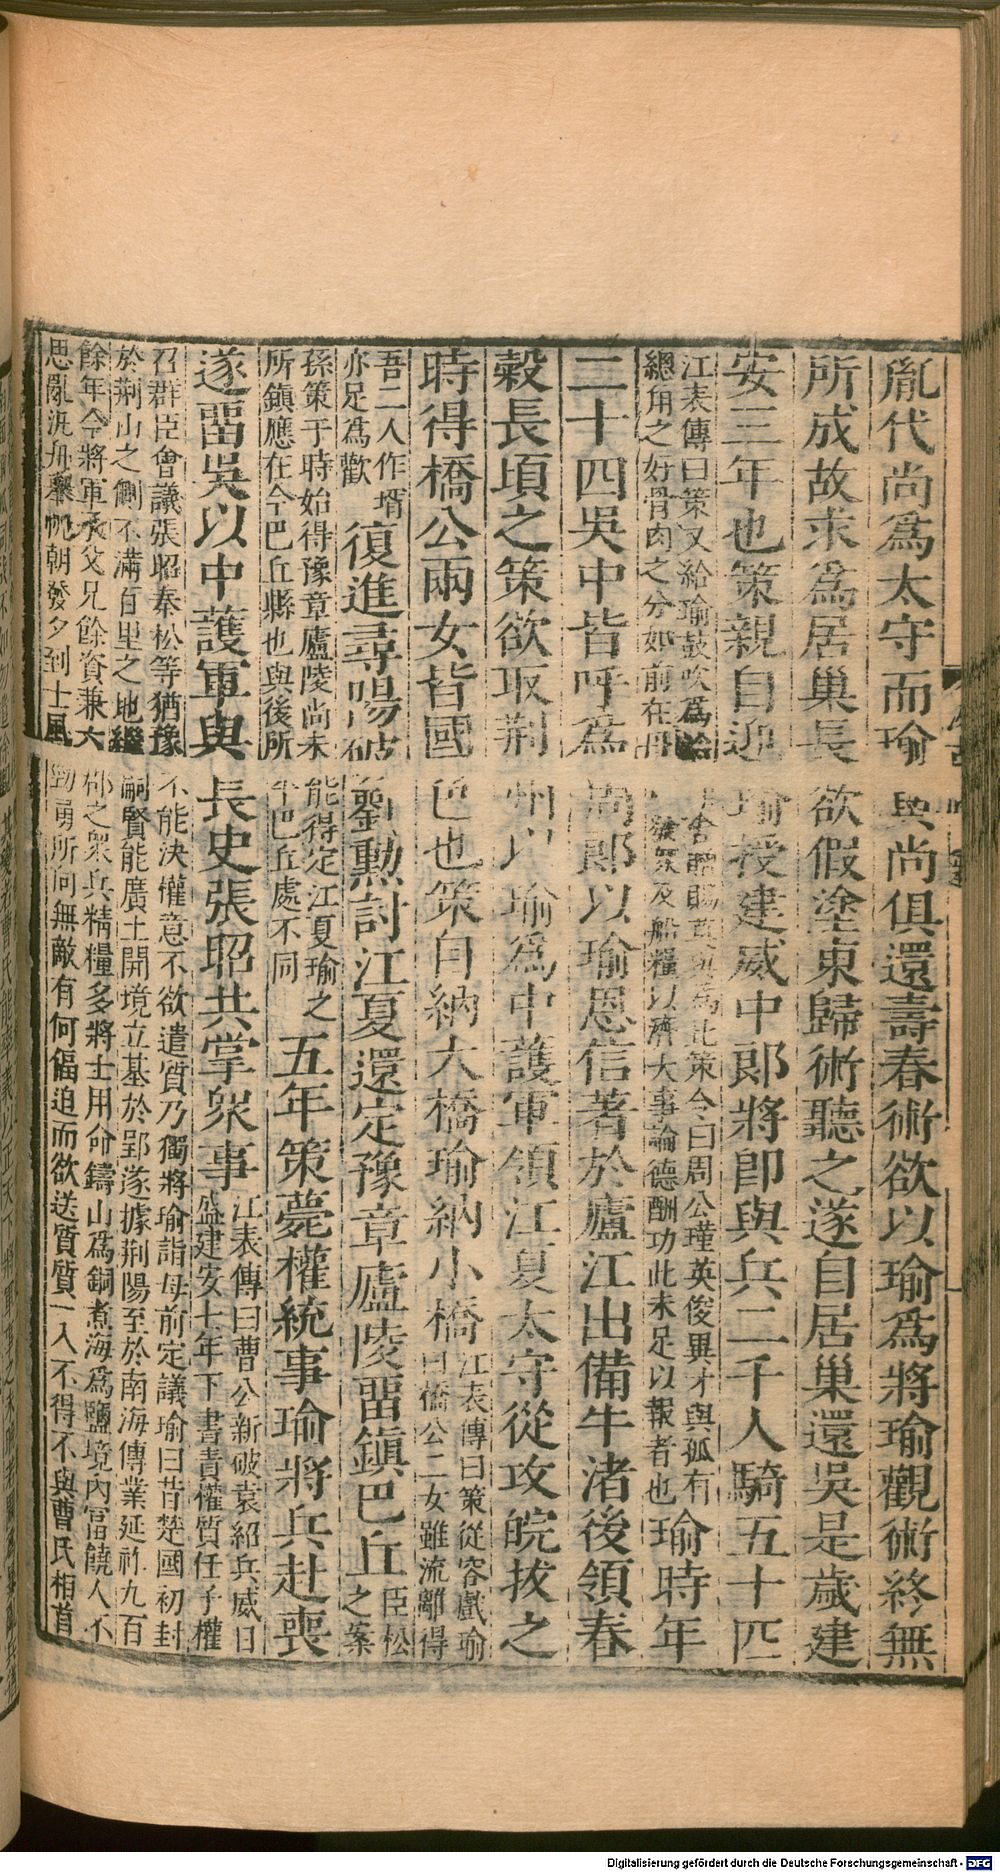 胤代尚爲太守而瑜與尚俱還壽春術欲以瑜爲將瑜觀術終無
所成故求爲居巢長欲假塗東歸術聽之遂自居巢還吳是歲建
安三年也策親自迎瑜授建威中郎將卽與兵二千人騎五十匹
江表傳曰策又給瑜鼓吹爲治館舍贈賜莫與爲比策令曰周公瑾英俊異才與孤有
總角之好骨肉之分如前在丹楊發衆及船糧以濟大事論德酬功此未足以報者也
瑜時年
二十四吳中皆呼爲周郎以瑜恩信著於廬江出備牛渚後領春
穀長頃之策欲取荆州以瑜爲中護軍領江夏太守從攻皖拔之
時得橋公兩女皆國色也策自納大橋瑜納小橋
江表傳曰策從容戲瑜
曰橋公二女雖流離得
吾二人作壻
亦足爲歡
復進尋陽破劉勳討江夏還定豫章廬陵畱鎮巴丘
臣松
之案
孫策于時始得豫章廬陵尚未能得定江夏瑜之
所鎮應在今巴丘縣也與後所平巴丘處不同
五年策薨權統事瑜將兵赴喪
遂畱吳以中護軍與長史張昭共掌衆事
江表傳曰曹公新破袁紹兵威日
盛建安七年下書責權質任子權
召群臣會議張昭秦松等猶豫不能決權意不欲遣質乃獨將瑜詣母前定議瑜曰昔楚國初封
於荆山之側不滿百里之地繼嗣賢能廣土開境立基於郢遂據荆陽至於南海傳業延祚九百
餘年今將軍承父兄餘資兼六郡之衆兵精糧多將士用命鑄山爲銅煮海爲鹽境內富饒人不
思亂汎舟舉帆朝發夕到士風勁勇所向無敵有何偪迫而欲送質質一入不得不與曹氏相首
Digitalisierung gefördert durch die Deutsche Forschungsgemeinschaft - DFG